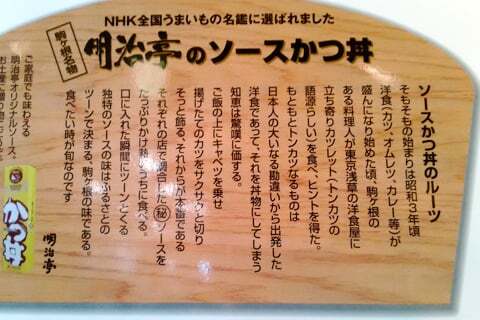 NHK全国うまいもの名鑑に選ばれました
駒ヶ根名物
明治亭のソースかつ丼
ソースかつ丼のルーツ
そもそもの始まりは昭和3年頃
洋食(カツ、オムレツ、カレー等)が
盛んになり始めた頃、駒ヶ根の
ある料理人が東京浅草の洋食屋に
立ち寄りカツレット(トンカツの
語源らしい)を食べ、ヒントを得た。
もともとトンカツなるものは
日本人の大いなる勘違いから出発した
洋食であって、それを丼物にしてしまう
知恵は驚嘆に価する。
ご飯の上にキャベツを乗せ
揚げたてのカツをサクサクと切り
そっと飾る。それからが本番である
それぞれの店で調合した㊙ソースを
たっぷりかけ熱いうちに食べる。
口に入れた瞬間にツーンとくる
独特のソースの味はふるさとの
ツーンで決まる、駒ヶ根の味である。
食べたい時が旬なのです
明治亭
ご家庭でも味わえる
明治亭オリジナルソース。
かつ丼